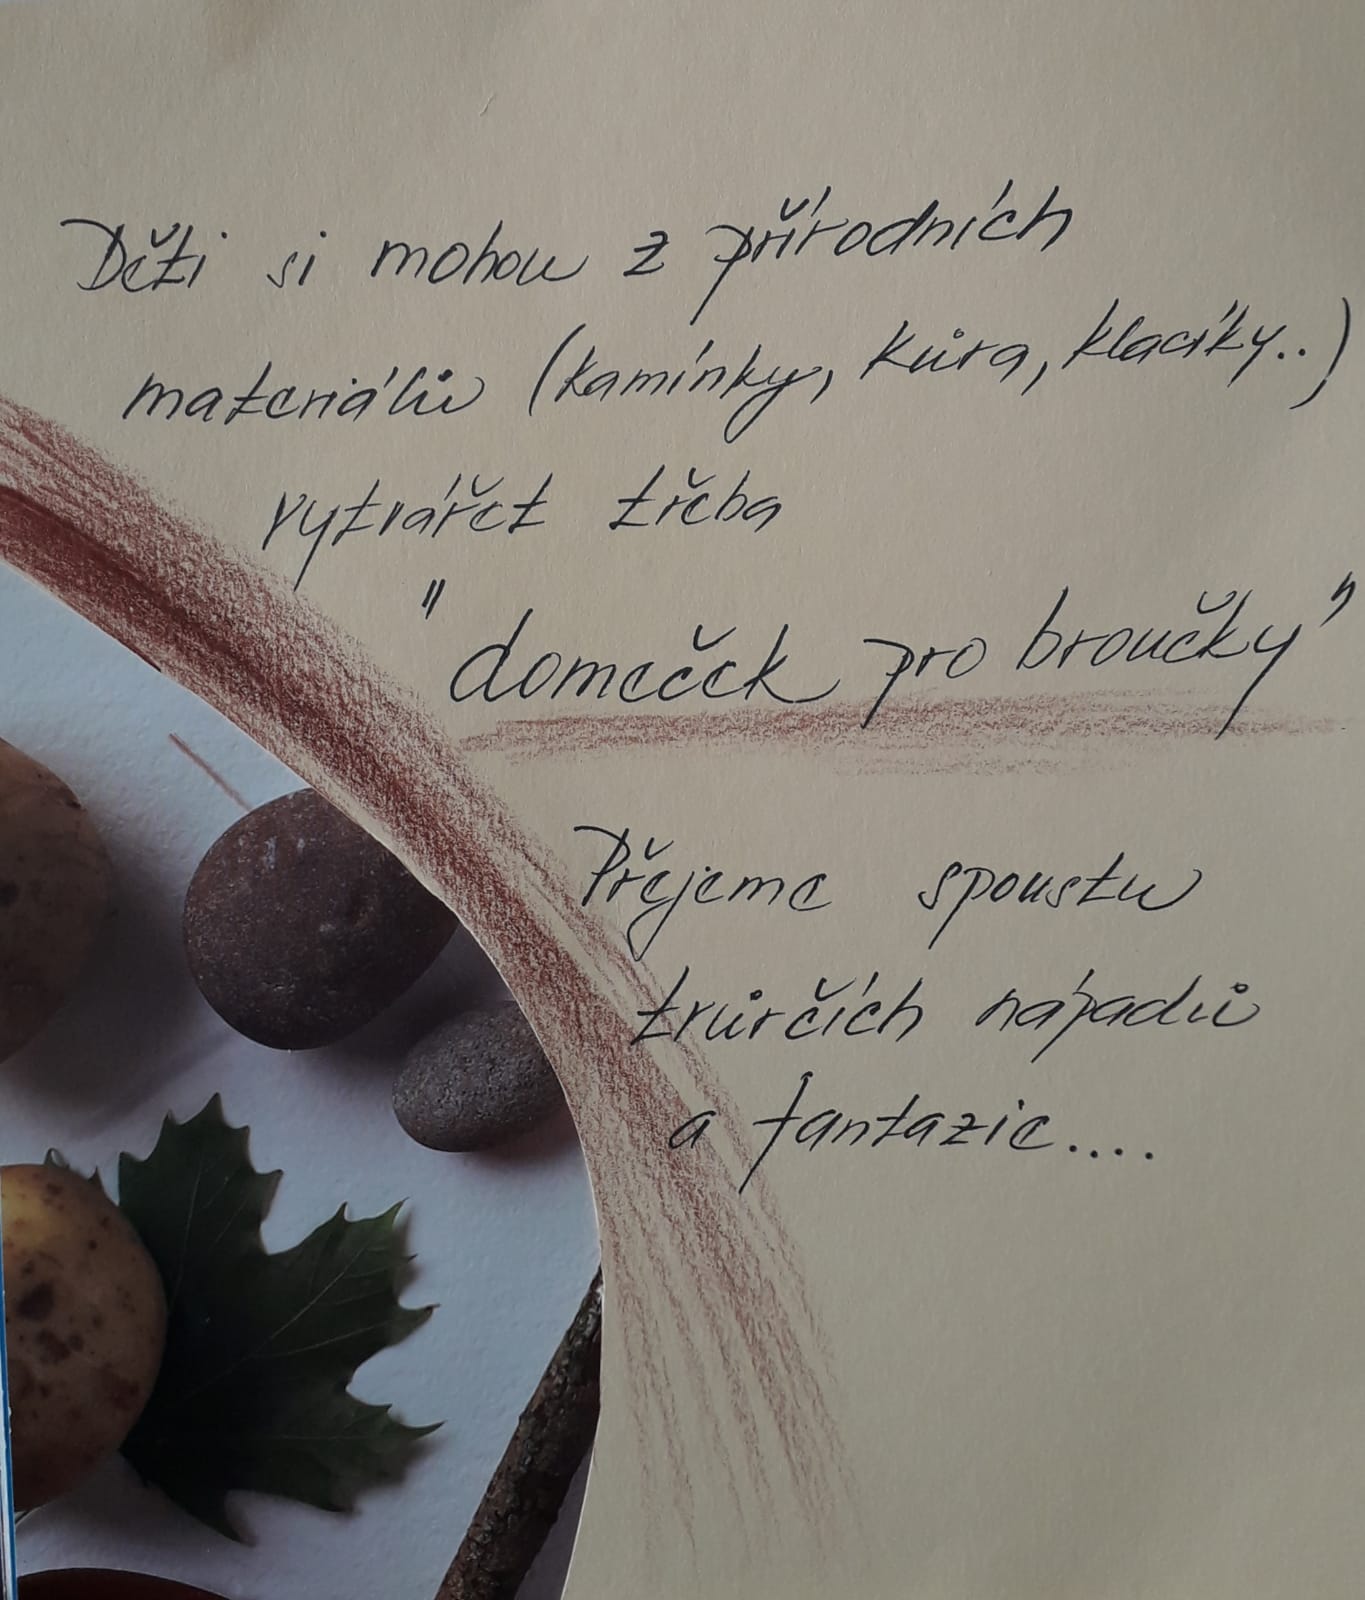 Děti si mohou z přírodních
materiálů (kamínky, kůra, klacíky..)
vytvářet třeba
"domeček pro broučky"
Přejeme spoustu
tvůrčích nápadů
a fantazie....